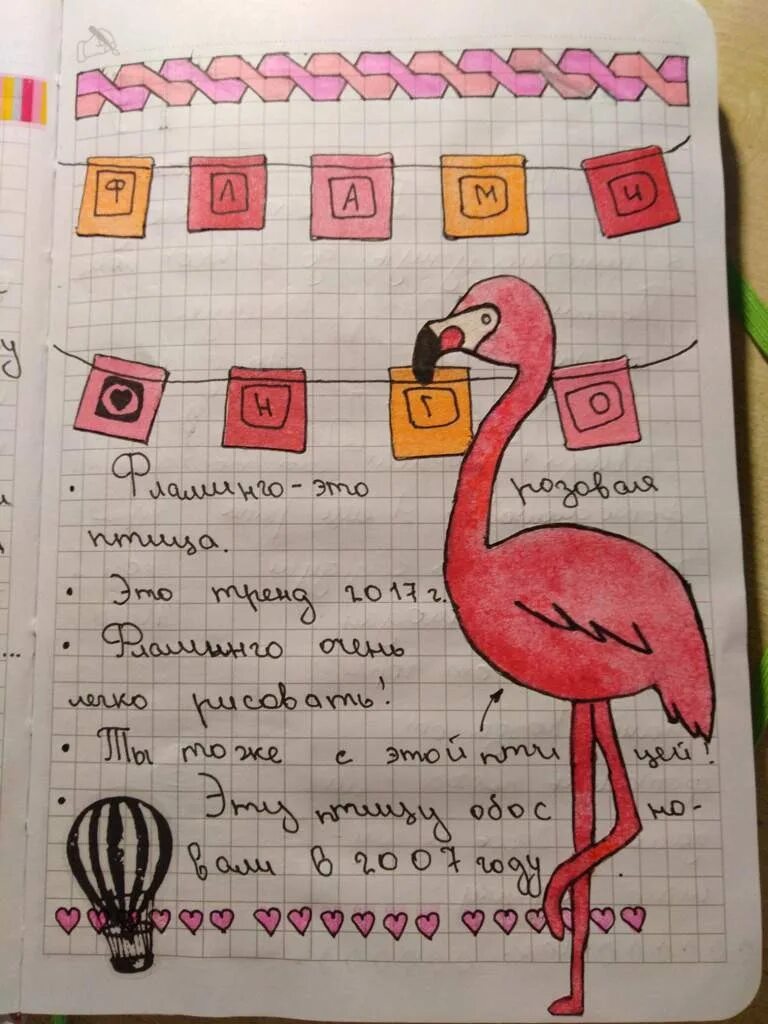 Ф Л А М И
Н Г О
• Фламинго-это розовая
птица.
• Это тренд 2017 г.
• Фламинго очень
легко рисовать!
• Ты тоже с этой птицей!
• Эту птицу обосно-
вали в 2007 году.
у
...